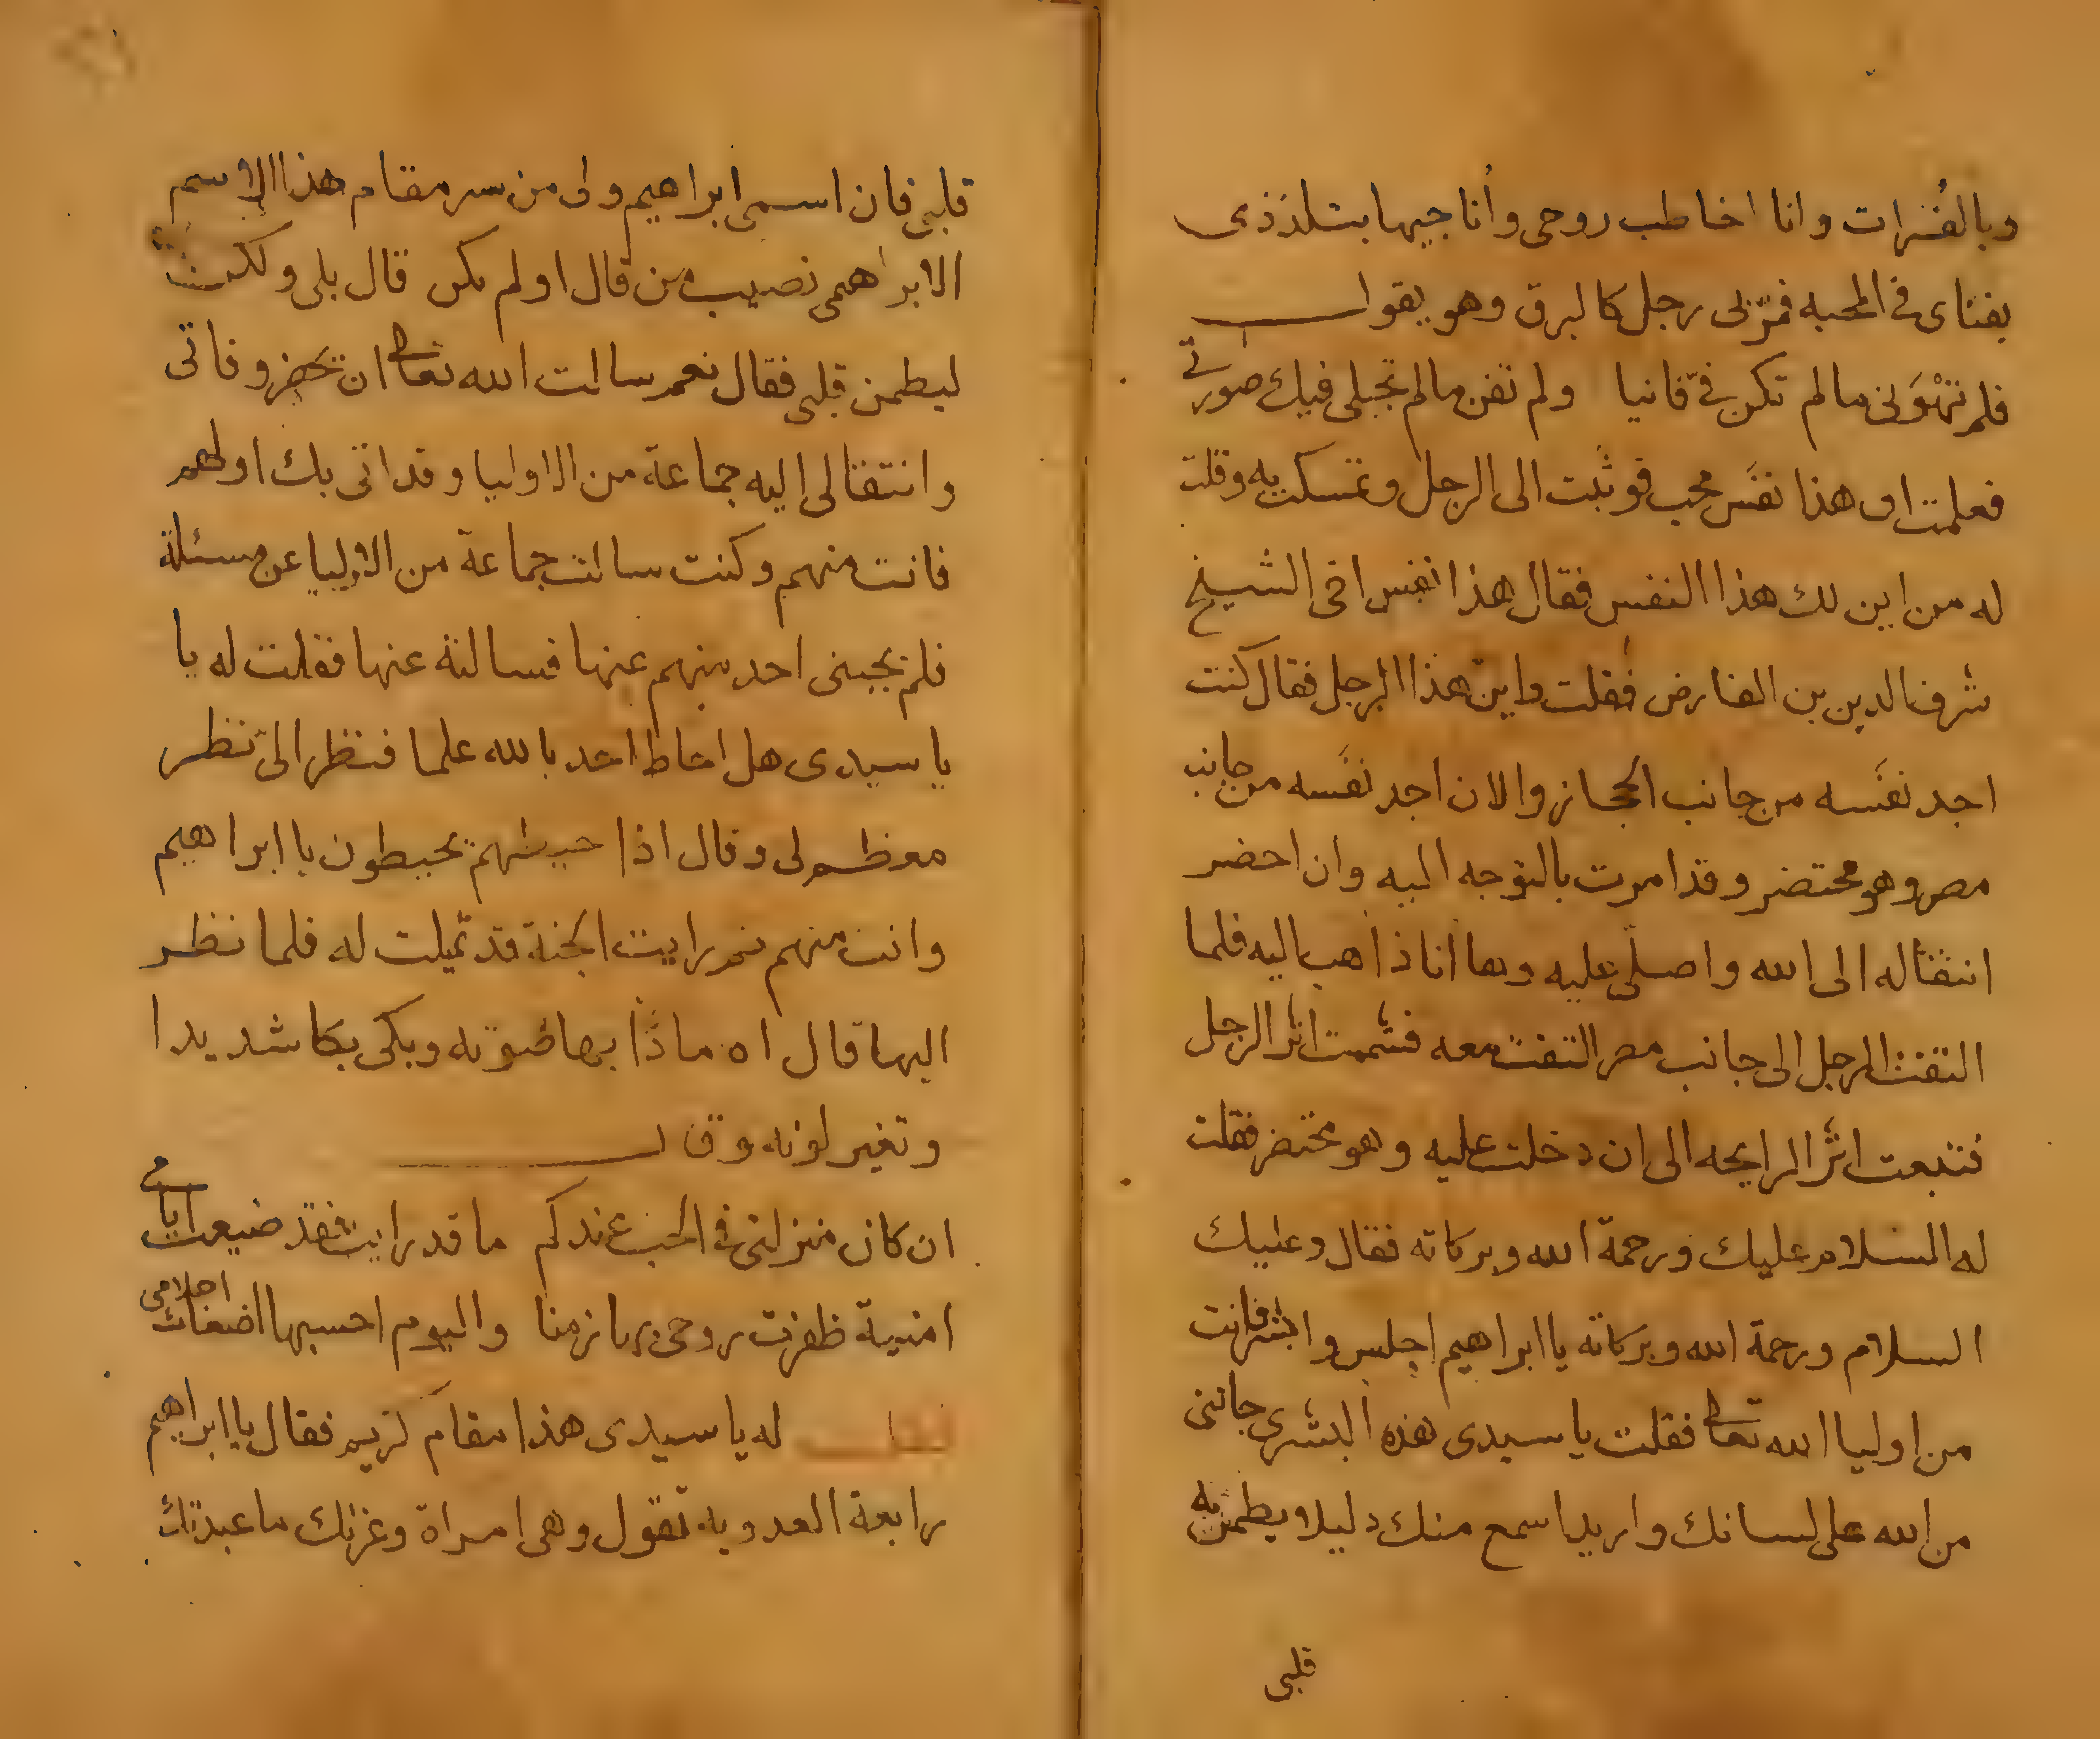 وبالفرات وانا اخاطب روحى وأناجيها بتلذذى
بفناى فى المحبه فمرّ بى رجل كالبرق وهو يقول
فلم تهْوَنى مالم تكن فىّ فانيا ولم تفن مالم تجتلى فيك صورتى
فعلمت ان هذا نفَس محب فوثبت الى الرجل وتمسكت به وقلت
له من اين لك هذا النفس فقال هذا نفس اخى الشيخ
شرف الدين بن الفارض فقلت واين هذا الرجل فقال كنت
اجد نفَسه من جانب الحجاز والان اجد نفَسه من جانب
مصر وهو محتضر وقد امرت بالتوجه اليه وان احضر
انتقاله الى الله واصلى عليه وها انا ذاهب اليه فلما
التفت الرجل الى جانب مصر التفت معه فشممت اثر الرجل
فتبعت اثر الرايحه الى ان دخلت عليه وهو محتضر فقلت
له السلام عليك ورحمة الله وبركاته فقال وعليك
السلام ورحمة الله وبركاته يا ابراهيم اجلس وابشر فانت
من اوليا الله تعالى فقلت يا سيدى هذه البشرى جاتنى
من الله على لسانك واريد اسمع منك دليلا يطمن به
قلبى
قلبى فان اسمى ابراهيم ولى من سر مقام هذا الاسم
الابراهمى نصيب من قال اولم تكن قال بلى ولكن
ليطمن قلبى فقال نعم سالت الله تعالى ان تحضر وفاتى
وانتقالى اليه جماعة من الاوليا وقد اتى بك اولهم
فانت منهم وكنت سالت جماعة من الاوليا عن مسئلة
فلم يجبنى احد منهم عنها فسالته عنها فقلت له يا
يا سيدى هل احاط احد بالله علما فنظر الىّ نظر
معظم لى وقال اذا حيطهم يحيطون يا ابراهيم
وانت منهم ثم رايت الجنة قد تمثلت له فلما نظر
اليها قال اه وبكى بكا شديدا
وتغير لونه وقال
ان كان منزلتى فى الحب عندكم ما قد رايت فقد ضيعت ايامى
امنية ظفرت روحى بها زمنا واليوم احسبها اضغاث احلامى
فقلت له يا سيدى هذا مقام كريم فقال يا ابراهيم
رابعة العدويه تقول وهى امراة وعزتك ما عبدتك